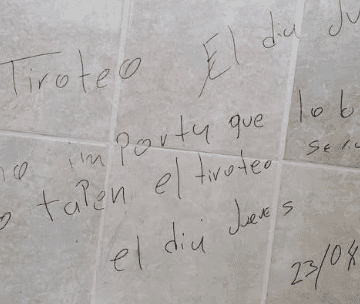 Tiroteo El dia Ju
no importa que lo b
o tapen el tiroteo
el dia Jueves
23/08